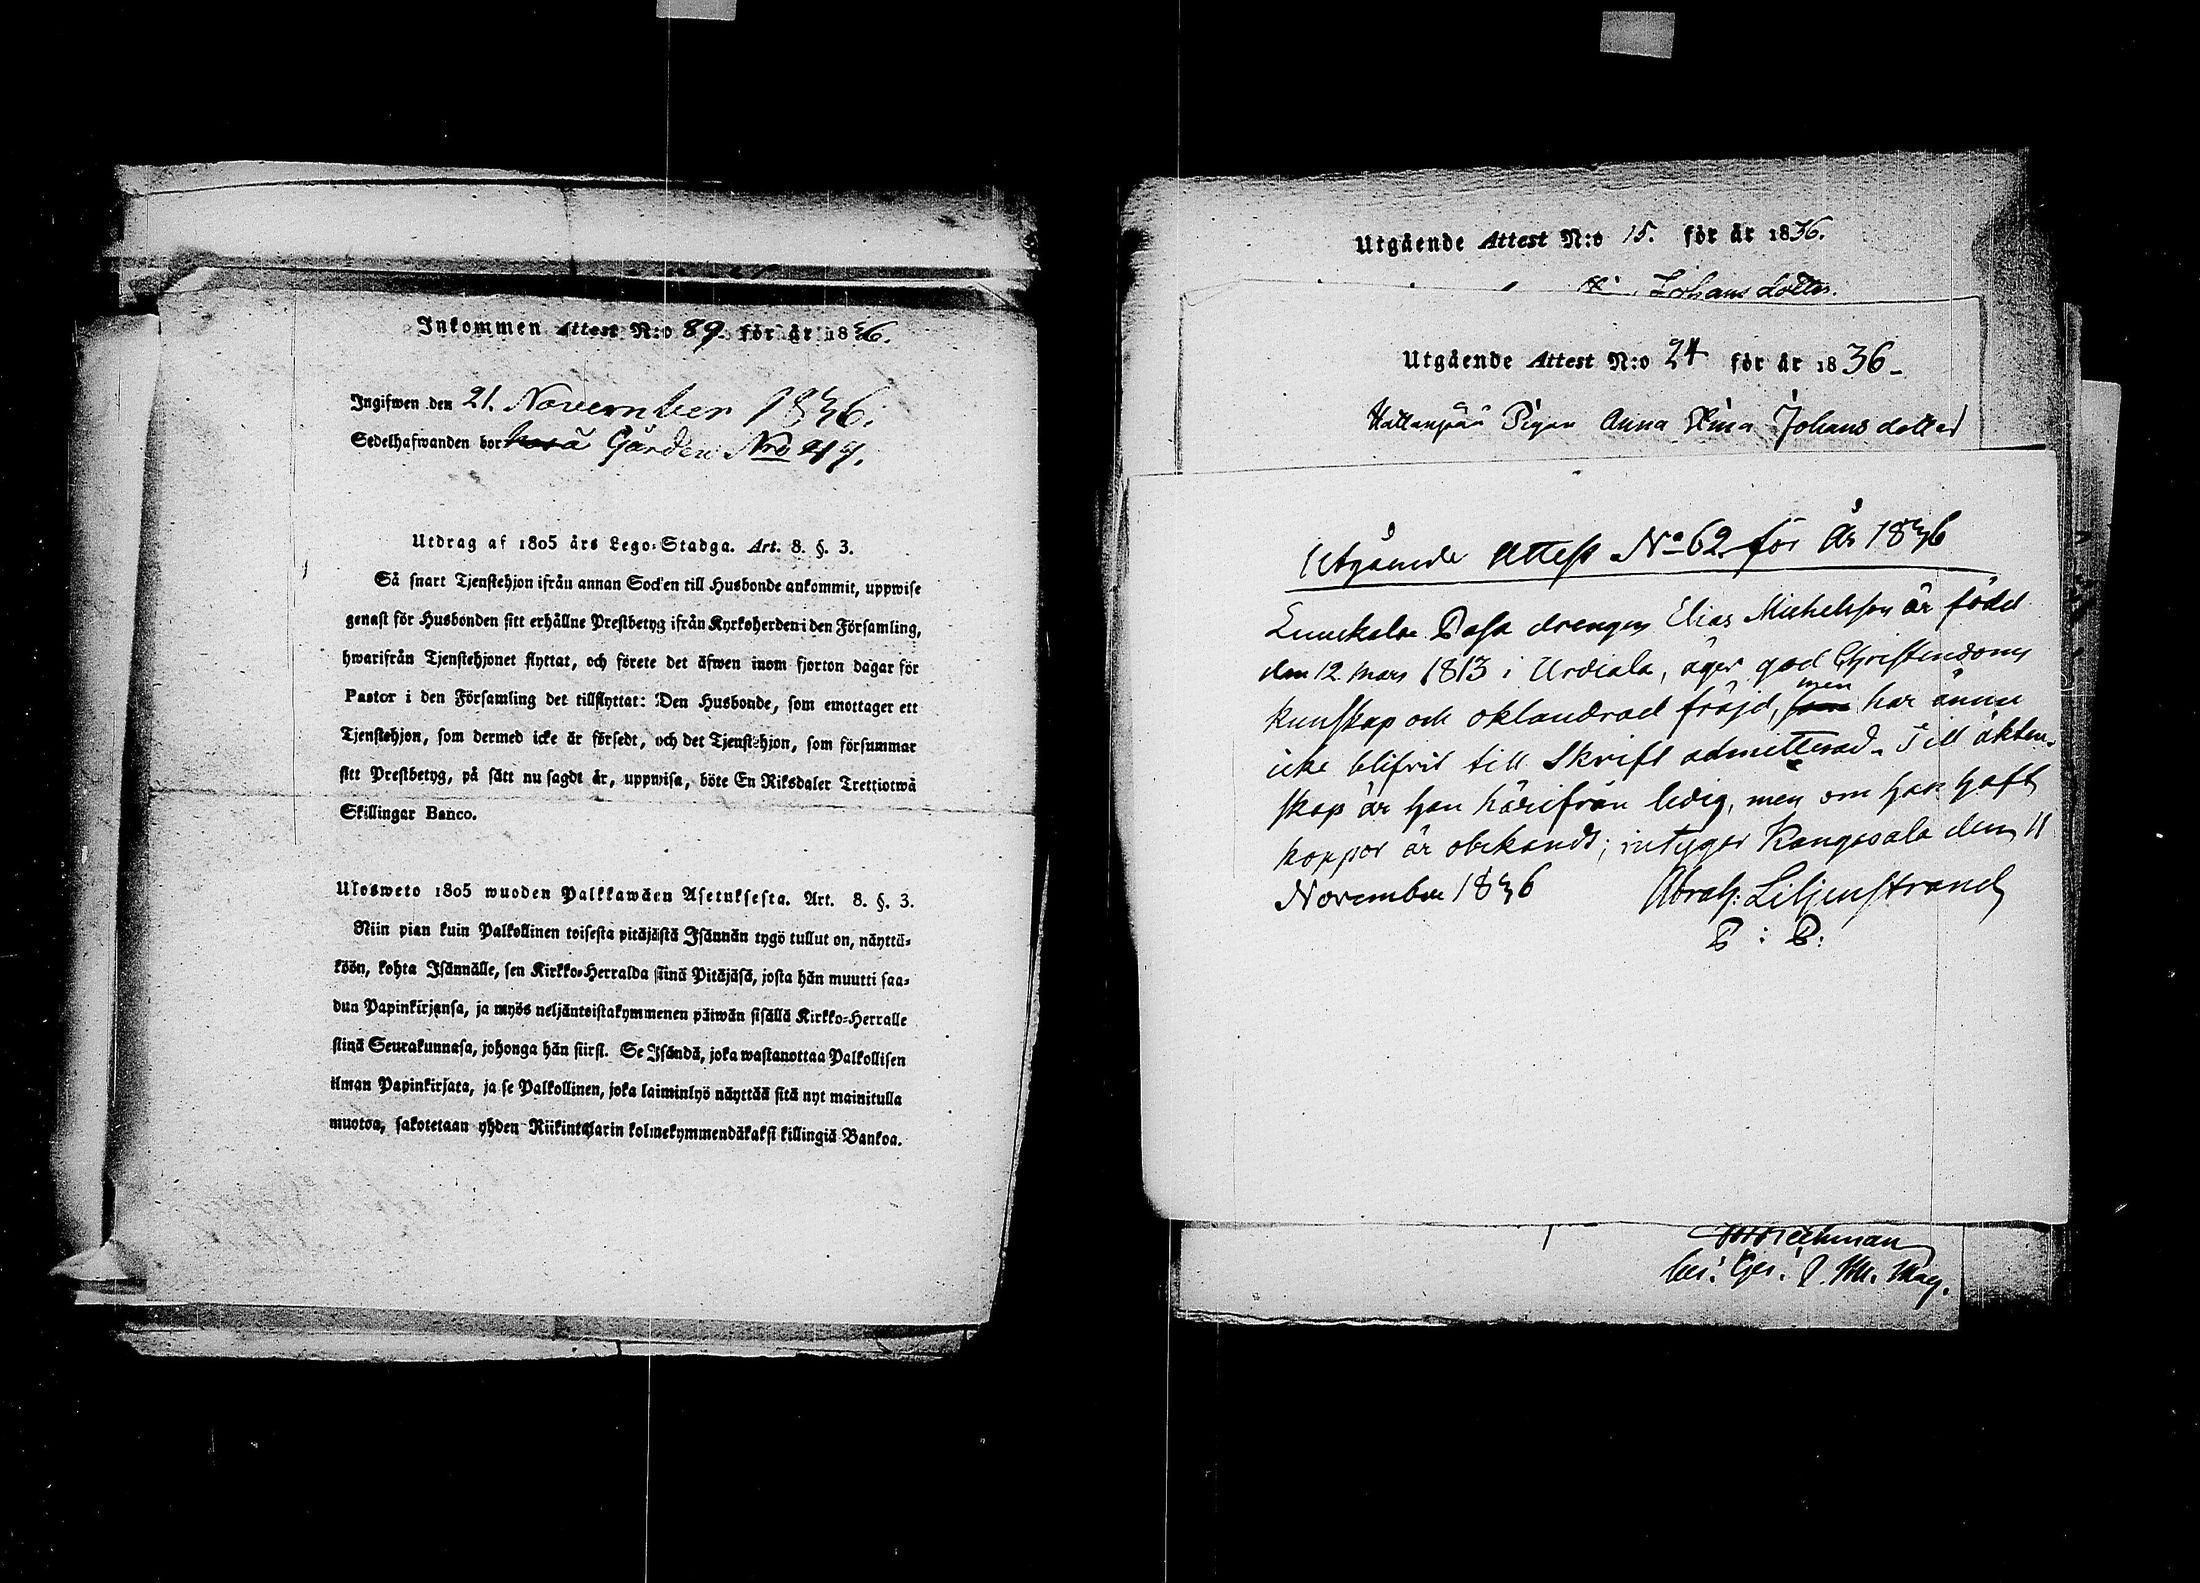 Inkommen Attest N:o 89. för år 1836.
Ingifwen den 21. November 1836.
Sedelhafwanden bor å Gården Nro 217.
Utdrag af 1805 års Lego-Stadga. Art. 8. §. 3.
Så snart Tjenstehjon ifrån annan Socken till Husbonde ankommit, uppwise
genast för Husbonden sitt erhållne Prestbetyg ifrån Kyrkoherden i den Församling,
hwarifrån Tjenstehjonet flyttat, och förete det äfwen inom fjorton dagar för
Pastor i den Församling det tillflyttat: Den Husbonde, som emottager ett
Tjenstehjon, som dermed icke är försedt, och det Tjenstehjon, som försummar
sitt Prestbetyg, på sätt nu sagdt är, uppwisa, böte En Riksdaler Trettiotwå
Skillingar Banco.
Ulosweto 1805 wuoden Palkkawäen Asetuksesta. Art. 8. §. 3.
Niin pian kuin Palkollinen toisesta pitäjästä Isännän tygö tullut on, näyttä-
köön, kohta Isännälle, sen Kirkko-Herralda siinä Pitäjäsä, josta hän muutti saa-
dun Papinkirjansa, ja myös neljäntoistakymmenen päiwän sisällä Kirkko-Herralle
siinä Seurakunnasa, johonga hän siirsi. Se Isändä, joka wastanottaa Palkollisen
ilman Papinkirjata, ja se Palkollinen, joka laiminlyö näyttää sitä nyt mainitulla
muotoa, sakotetaan yhden Riikintalarin kolmekymmendäkaksi killingiä Bankoa.
Utgående Attest N:o 15. för år 1836.
Johansdotter.
Utgående Attest N:o 24 för år 1836-
Pigan Anna Stina Johansdotter
Utgående Attest No 62 för År 1836
drengen Elias Michelsson är född
den 12 mars 1813 i Urdiala, äger god Christendoms
kunskap och oklandrad fräjd, men har ännu
icke blifvit till Skrift admitterad. Till äkten-
skap är han härifrån ledig, men om han haft
koppor är obekandt; intygar Kangasala den 11
November 1836 Abrah: Liljenstrand
P: P: